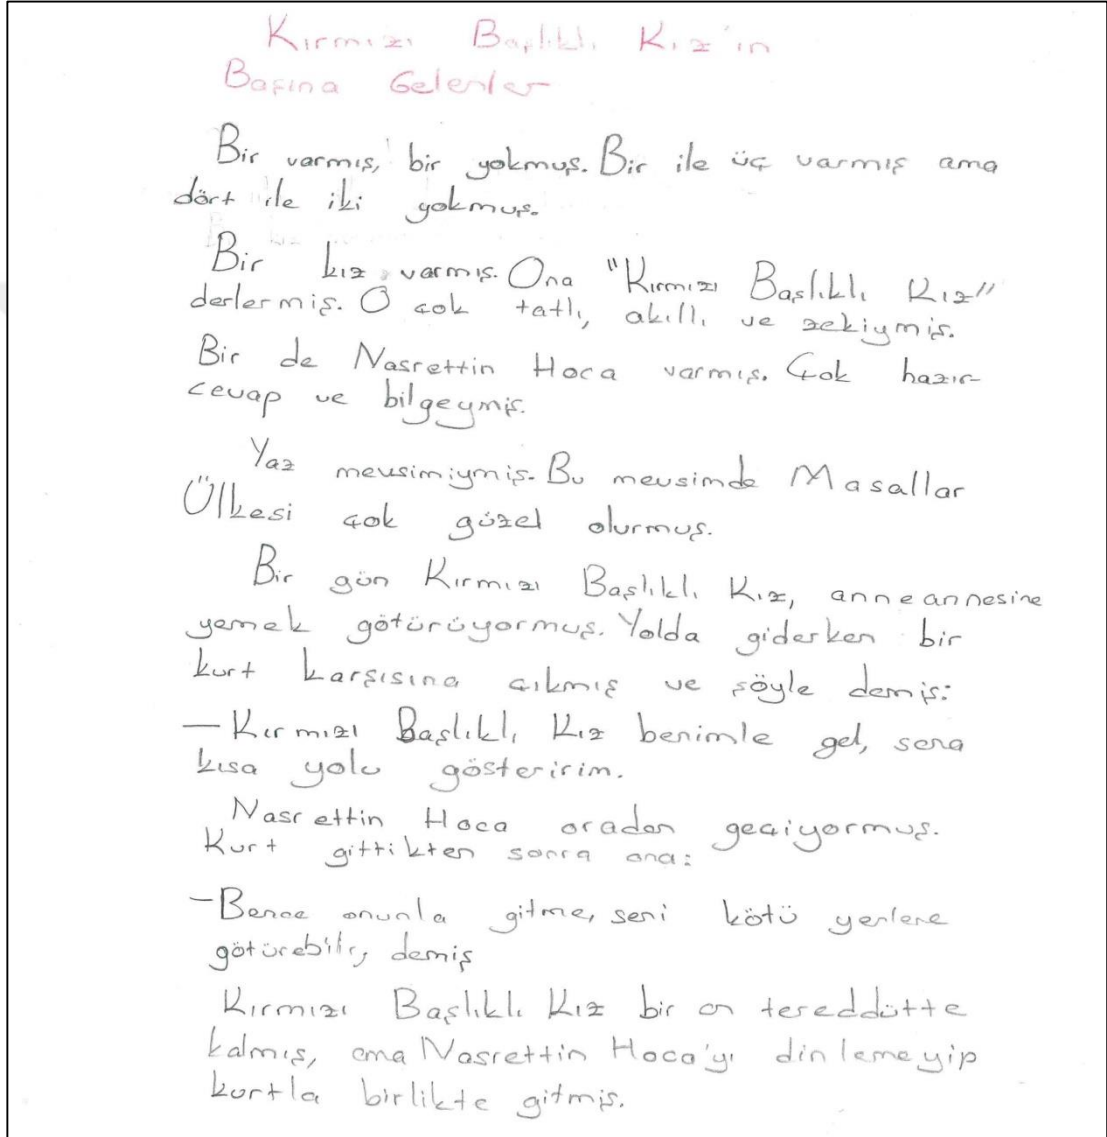 Kırmızı Başlıklı Kız'ın
Başına Gelenler
Bir varmış, bir yokmuş. Bir ile üç varmış ama
dört ile iki yokmuş.
Bir kız varmış. Ona "Kırmızı Başlıklı Kız"
derlermiş. O çok tatlı, akıllı ve zekiymiş.
Bir de Nasrettin Hoca varmış. Çok hazır-
cevap ve bilgeymiş.
Yaz mevsimiymiş. Bu mevsimde Masallar
Ülkesi çok güzel olurmuş.
Bir gün Kırmızı Başlıklı Kız, anneannesine
yemek götürüyormuş. Yolda giderken bir
kurt karşısına çıkmış ve şöyle demiş:
—Kırmızı Başlıklı Kız benimle gel, sana
kısa yolu gösteririm.
Nasrettin Hoca oradan geçiyormuş.
Kurt gittikten sonra ona:
—Bence onunla gitme, seni kötü yerlere
götürebilir, demiş
Kırmızı Başlıklı Kız bir an tereddütte
kalmış, ama Nasrettin Hoca'yı dinlemeyip
kurtla birlikte gitmiş.